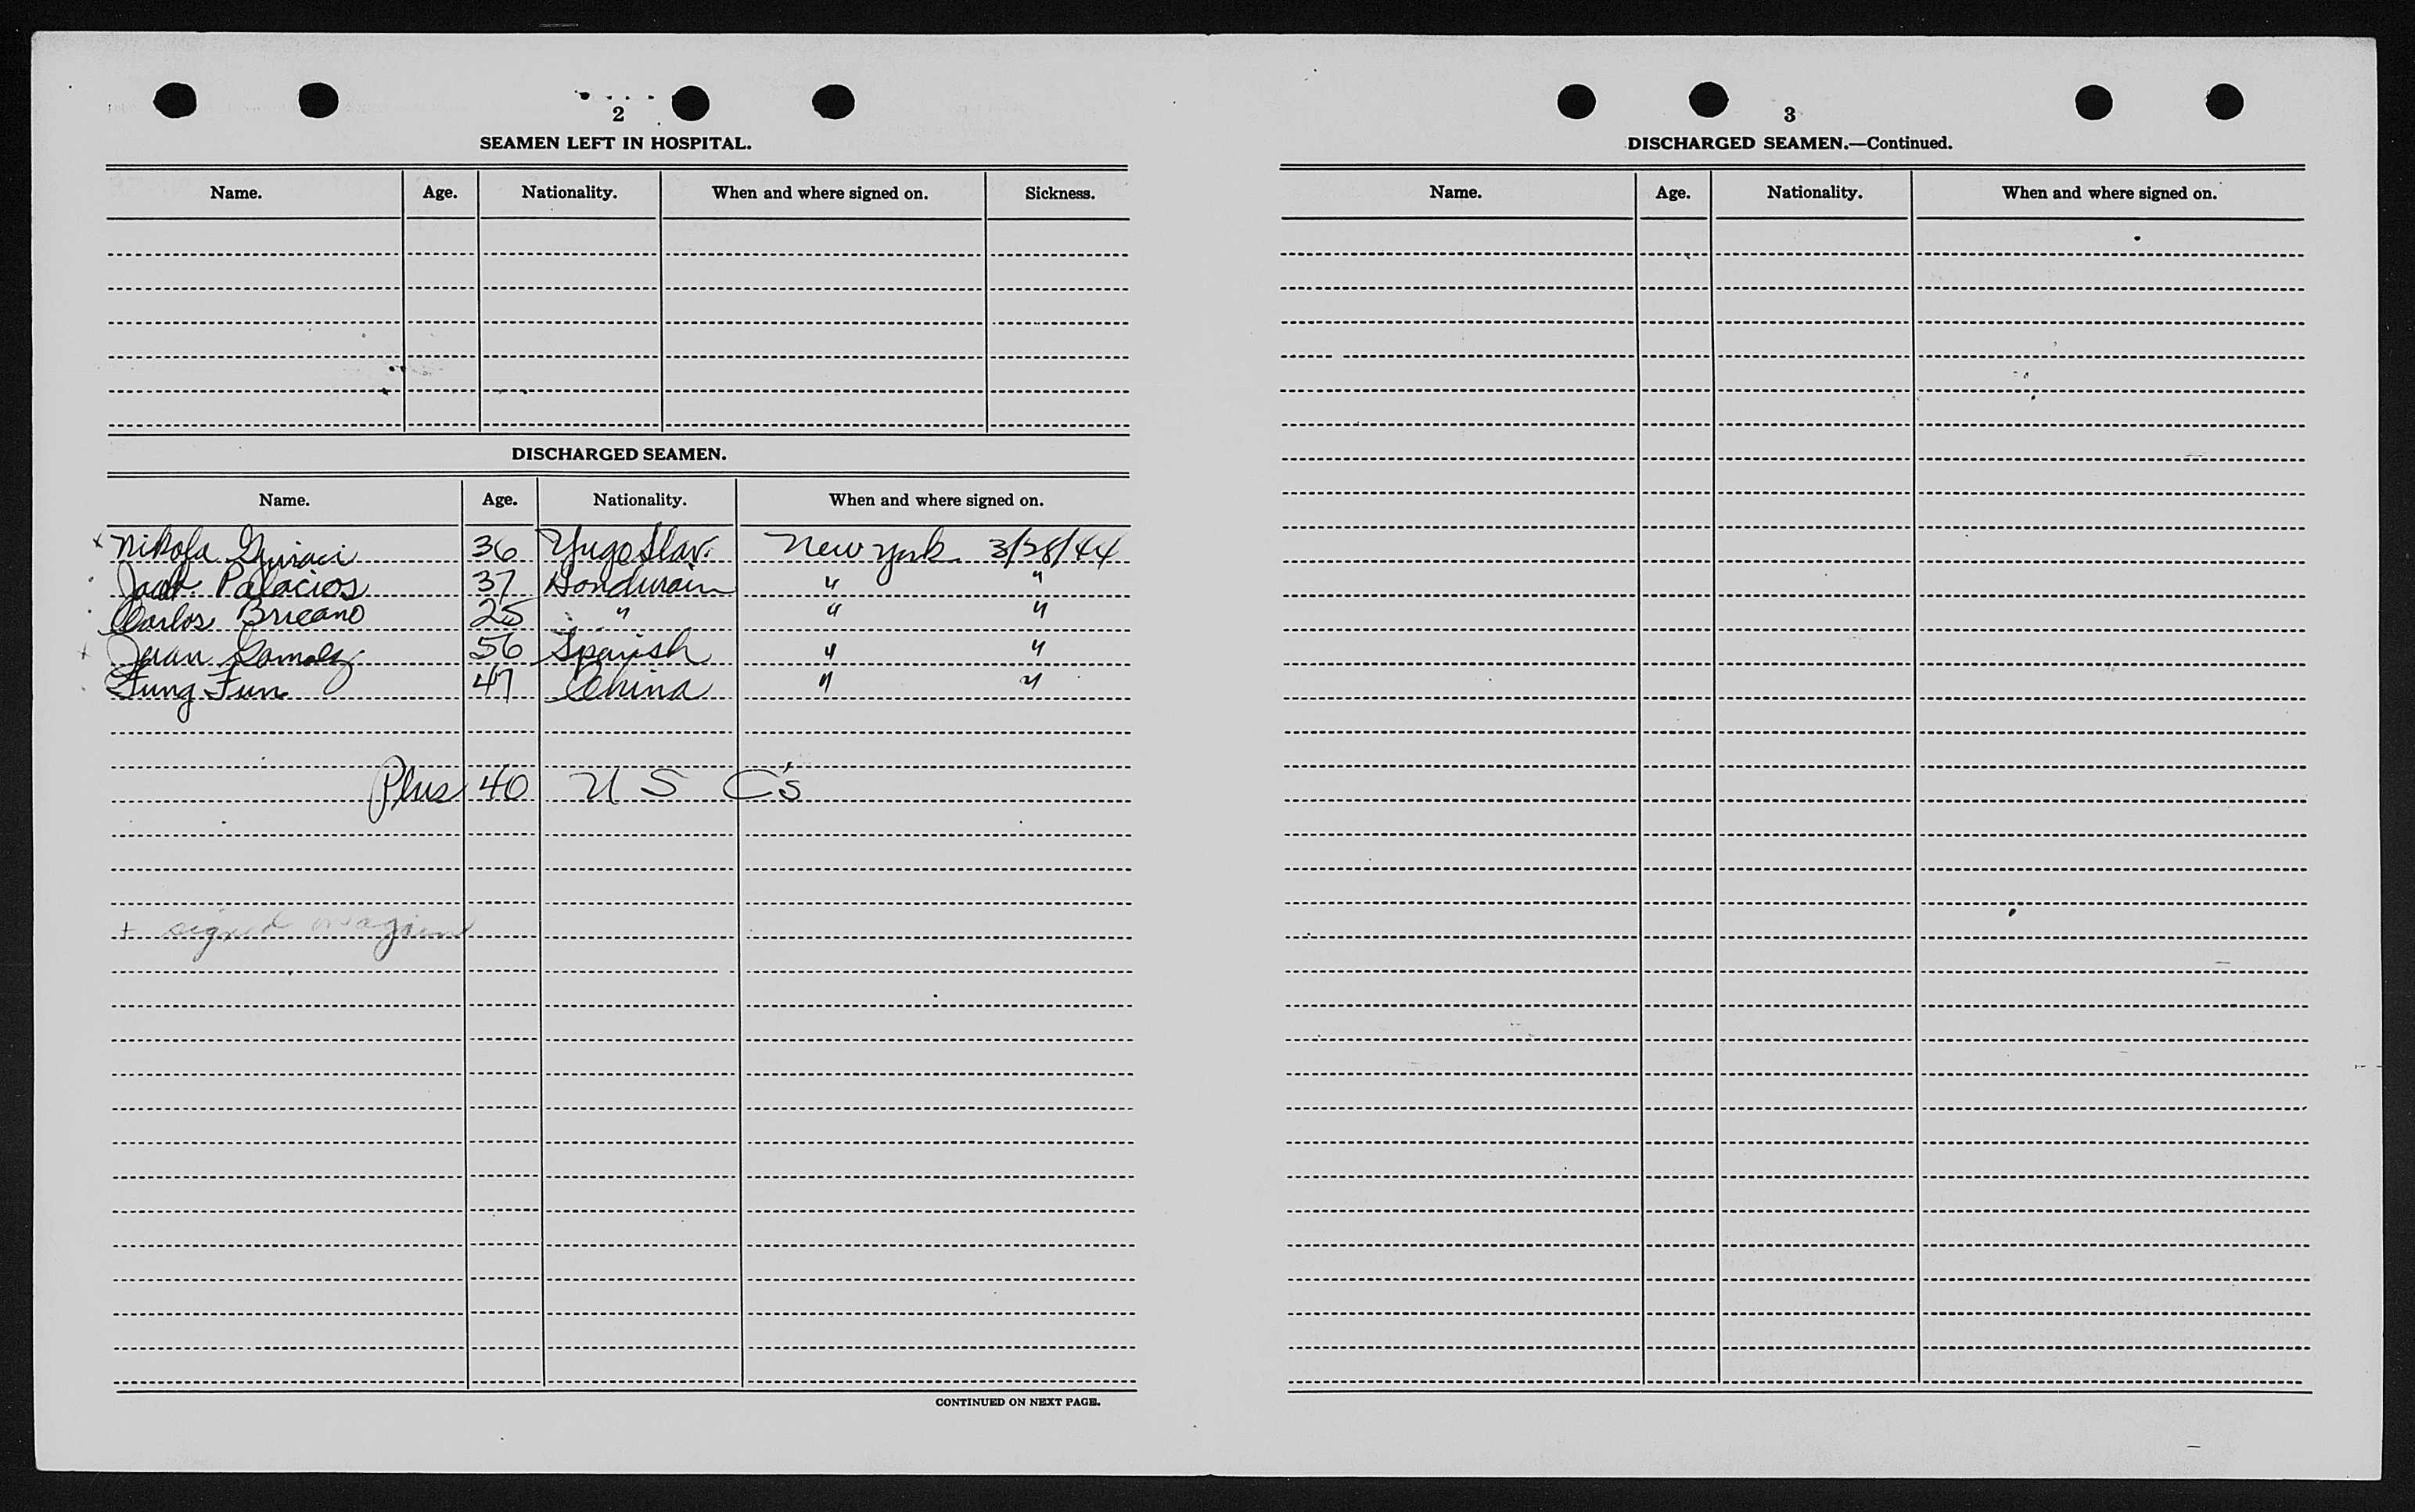 2
SEAMEN LEFT IN HOSPITAL.
Name. Age. Nationality. When and where signed on. Sickness.
DISCHARGED SEAMEN.
Name. Age. Nationality. When and where signed on.
x Nikola 36 Yugo Slav. New York 3/28/44
Palacios 37 Hondurain " "
Carlos Briceano 25 " " "
+ Juan Gomez 56 Spanish " "
Fung Fun 47 China " "
Plus 40 U S C's
+ signed on again
CONTINUED ON NEXT PAGE.
3
DISCHARGED SEAMEN.—Continued.
Name. Age. Nationality. When and where signed on.